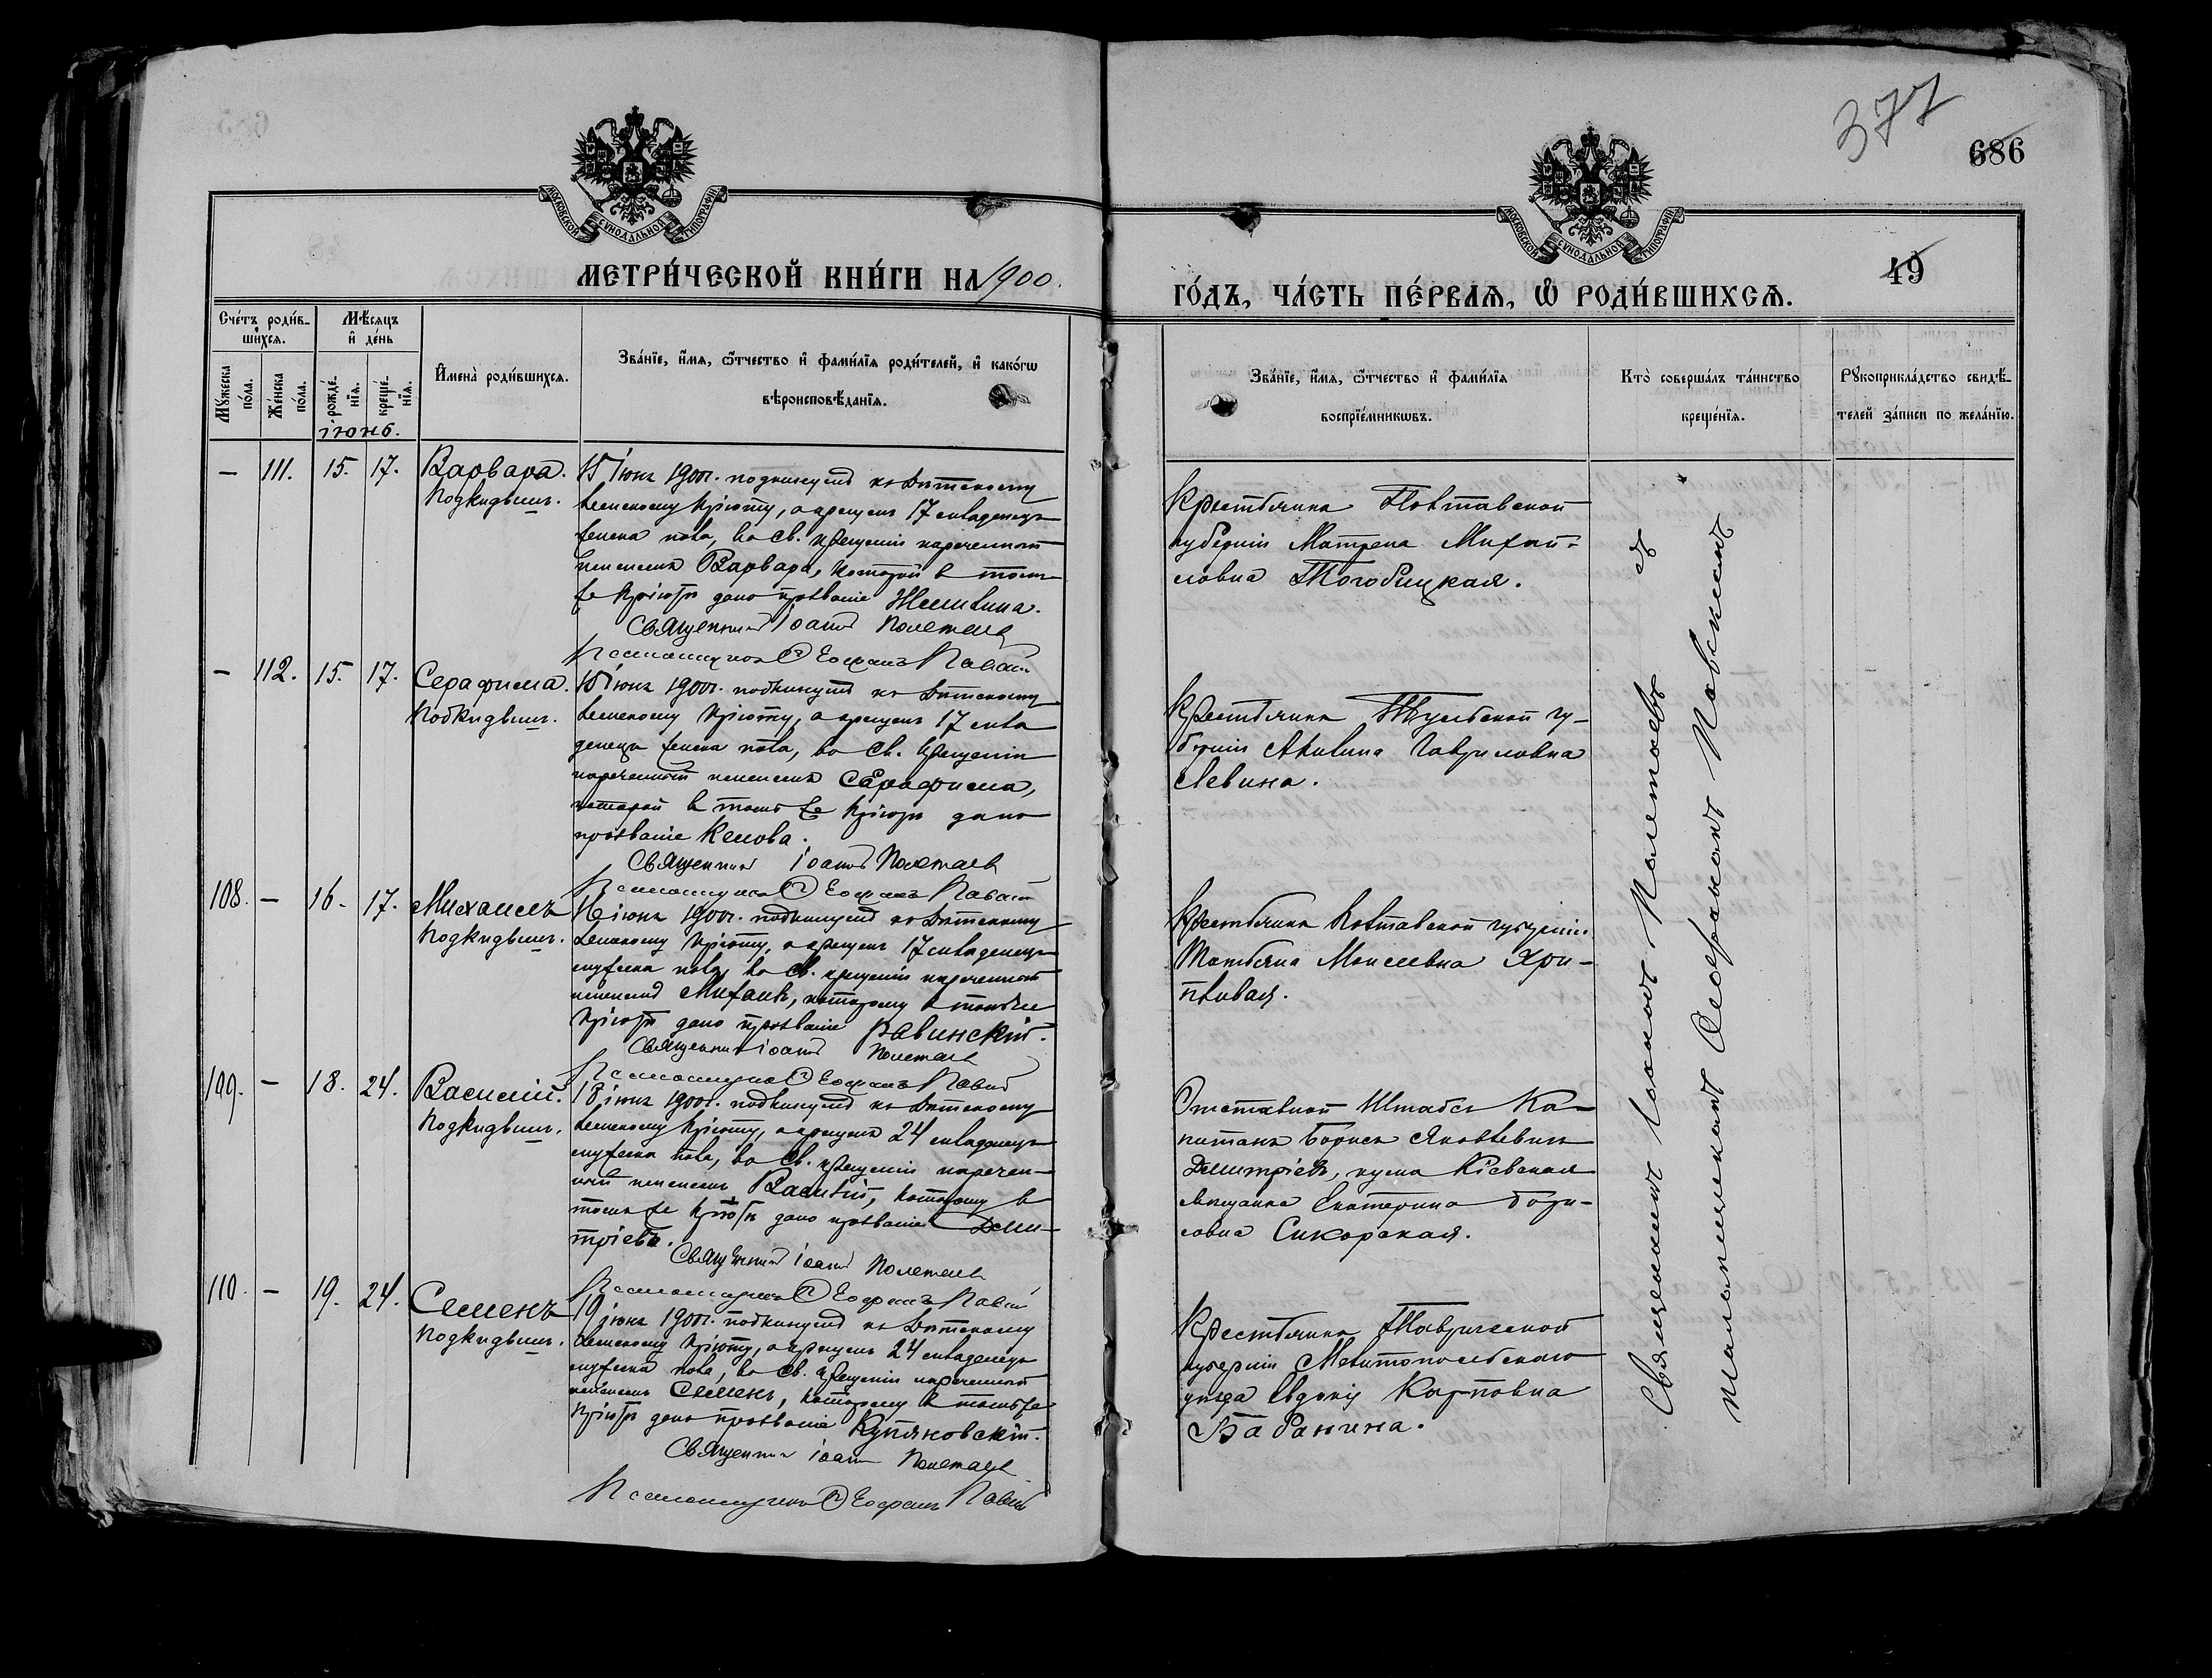 377
686
МОСКОВСКОЙ СѴНОДАЛЬНОЙ ТИПОГРАФІИ
МОСКОВСКОЙ СѴНОДАЛЬНОЙ ТИПОГРАФІИ
49
МЕТРИ́ЧЕСКОЙ КНИ́ГИ НА 1900.
ГО́ДЪ, ЧА́СТЬ ПЕ́РВАЯ, Ѿ РОДИ́ВШИХСЯ.
Сче́тъ роди́в-
шихся.
Мужеска по́ла.
Же́нска по́ла.
Мѣ́сяцъ
и҆ де́нь
рожде́нїя.
креще́нїя.
іюнь.
И҆мена̀ роди́вшихся.
Зва́нїе, и҆́мя, ѻ҆́тчество и҆ фами́лїя роди́телей, и҆ како́гѡ
вѣроисповѣ́данїя.
Зва́нїе, и҆́мя, ѻ҆́тчество и҆ фами́лїя
воспрїе́мникѡвъ.
Кто̀ соверша́лъ та́инство
креще́нїя.
Рукоприкла́дство свидѣ́-
телей за́писи по жела́нїю.
— 111. 15. 17. Варвара.
Подкидышъ.
15 іюня 1900г. подкинутъ къ Дѣтскому
Земскому Пріюту, а крещенъ 17 младенецъ
женска пола, во Св. крещеніи нареченный
именемъ Варвара, которой в томъ
же Пріютѣ дано прозваніе
Священникъ Іоаннъ Полетаевъ
Псаломщикъ
Крестьянка Полтавской
губерніи Матрена Михай-
ловна
— 112. 15. 17. Серафима.
Подкидышъ.
15 іюня 1900г. подкинутъ къ Дѣтскому
Земскому Пріюту, а крещенъ 17 мла
денецъ женска пола, во Св. Крещеніи
нареченный именемъ Серафима,
которой в томъ же Пріютѣ дано
прозваніе
Священникъ Іоаннъ Полетаевъ
Псаломщикъ
Крестьянка Тульской гу-
берніи Акилина Гавриловна
Левина.
108. — 16. 17. Михаилъ
Подкидышъ.
16 іюня 1900г. подкинутъ къ Дѣтскому
Земскому Пріюту, а крещенъ 17 младенецъ
мужска пола, во Св. крещеніи нареченный
именемъ Михаилъ, которому в томъ же
Пріютѣ дано прозваніе Равинскій.
Священникъ Іоаннъ Полетаевъ
Псаломщикъ
Крестьянка Полтавской губерніи
Татьяна Моисеевна Хри-
пливая.
109. — 18. 24. Василій.
Подкидышъ.
18 іюня 1900г. подкинутъ къ Дѣтскому
Земскому Пріюту, а крещенъ 24 младенецъ
мужска пола, во Св. крещеніи наречен-
ный именемъ Василій, которому в
томъ же Пріютѣ дано прозваніе Дми-
тріевъ.
Священникъ Іоаннъ Полетаевъ
Псаломщикъ
Отставной Штабсъ Ка-
питанъ Борисъ Яковлевичъ
Дмитріевъ, кума Кіевская
мѣщанка Екатерина Бори-
совна Сикорская.
110. — 19. 24. Семенъ
Подкидышъ.
19 іюня 1900г. подкинутъ къ Дѣтскому
Земскому Пріюту, а крещенъ 24 младенецъ
мужска пола, во Св. Крещеніи нареченный
именемъ Семенъ, которому в томъ же
Пріютѣ дано прозваніе Купяковскій.
Священникъ Іоаннъ Полетаевъ
Псаломщикъ
Крестьянка Таврической
губерніи Мелитопольскаго
уѣзда Евдокія Карповна
Бабанина.
Священникъ Іоаннъ Полетаевъ съ
псаломщикомъ